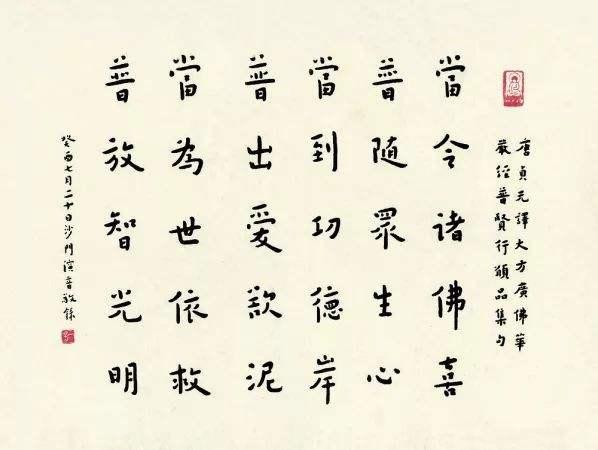 唐貞元譯大方廣佛華
嚴經普賢行願品集句
當令諸佛喜
普隨眾生心
當到功德岸
普出愛欲泥
當為世依救
普放智光明
癸酉七月二十日沙門演音敬錄